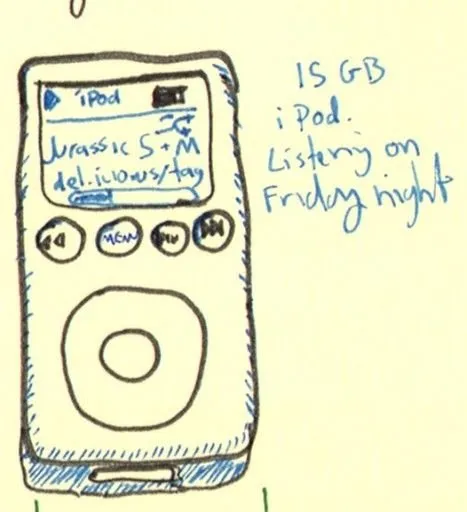 iPod
Jurassic 5 + M
del.icio.us/tag
MENU
15 GB
iPod.
Listening on
Friday night